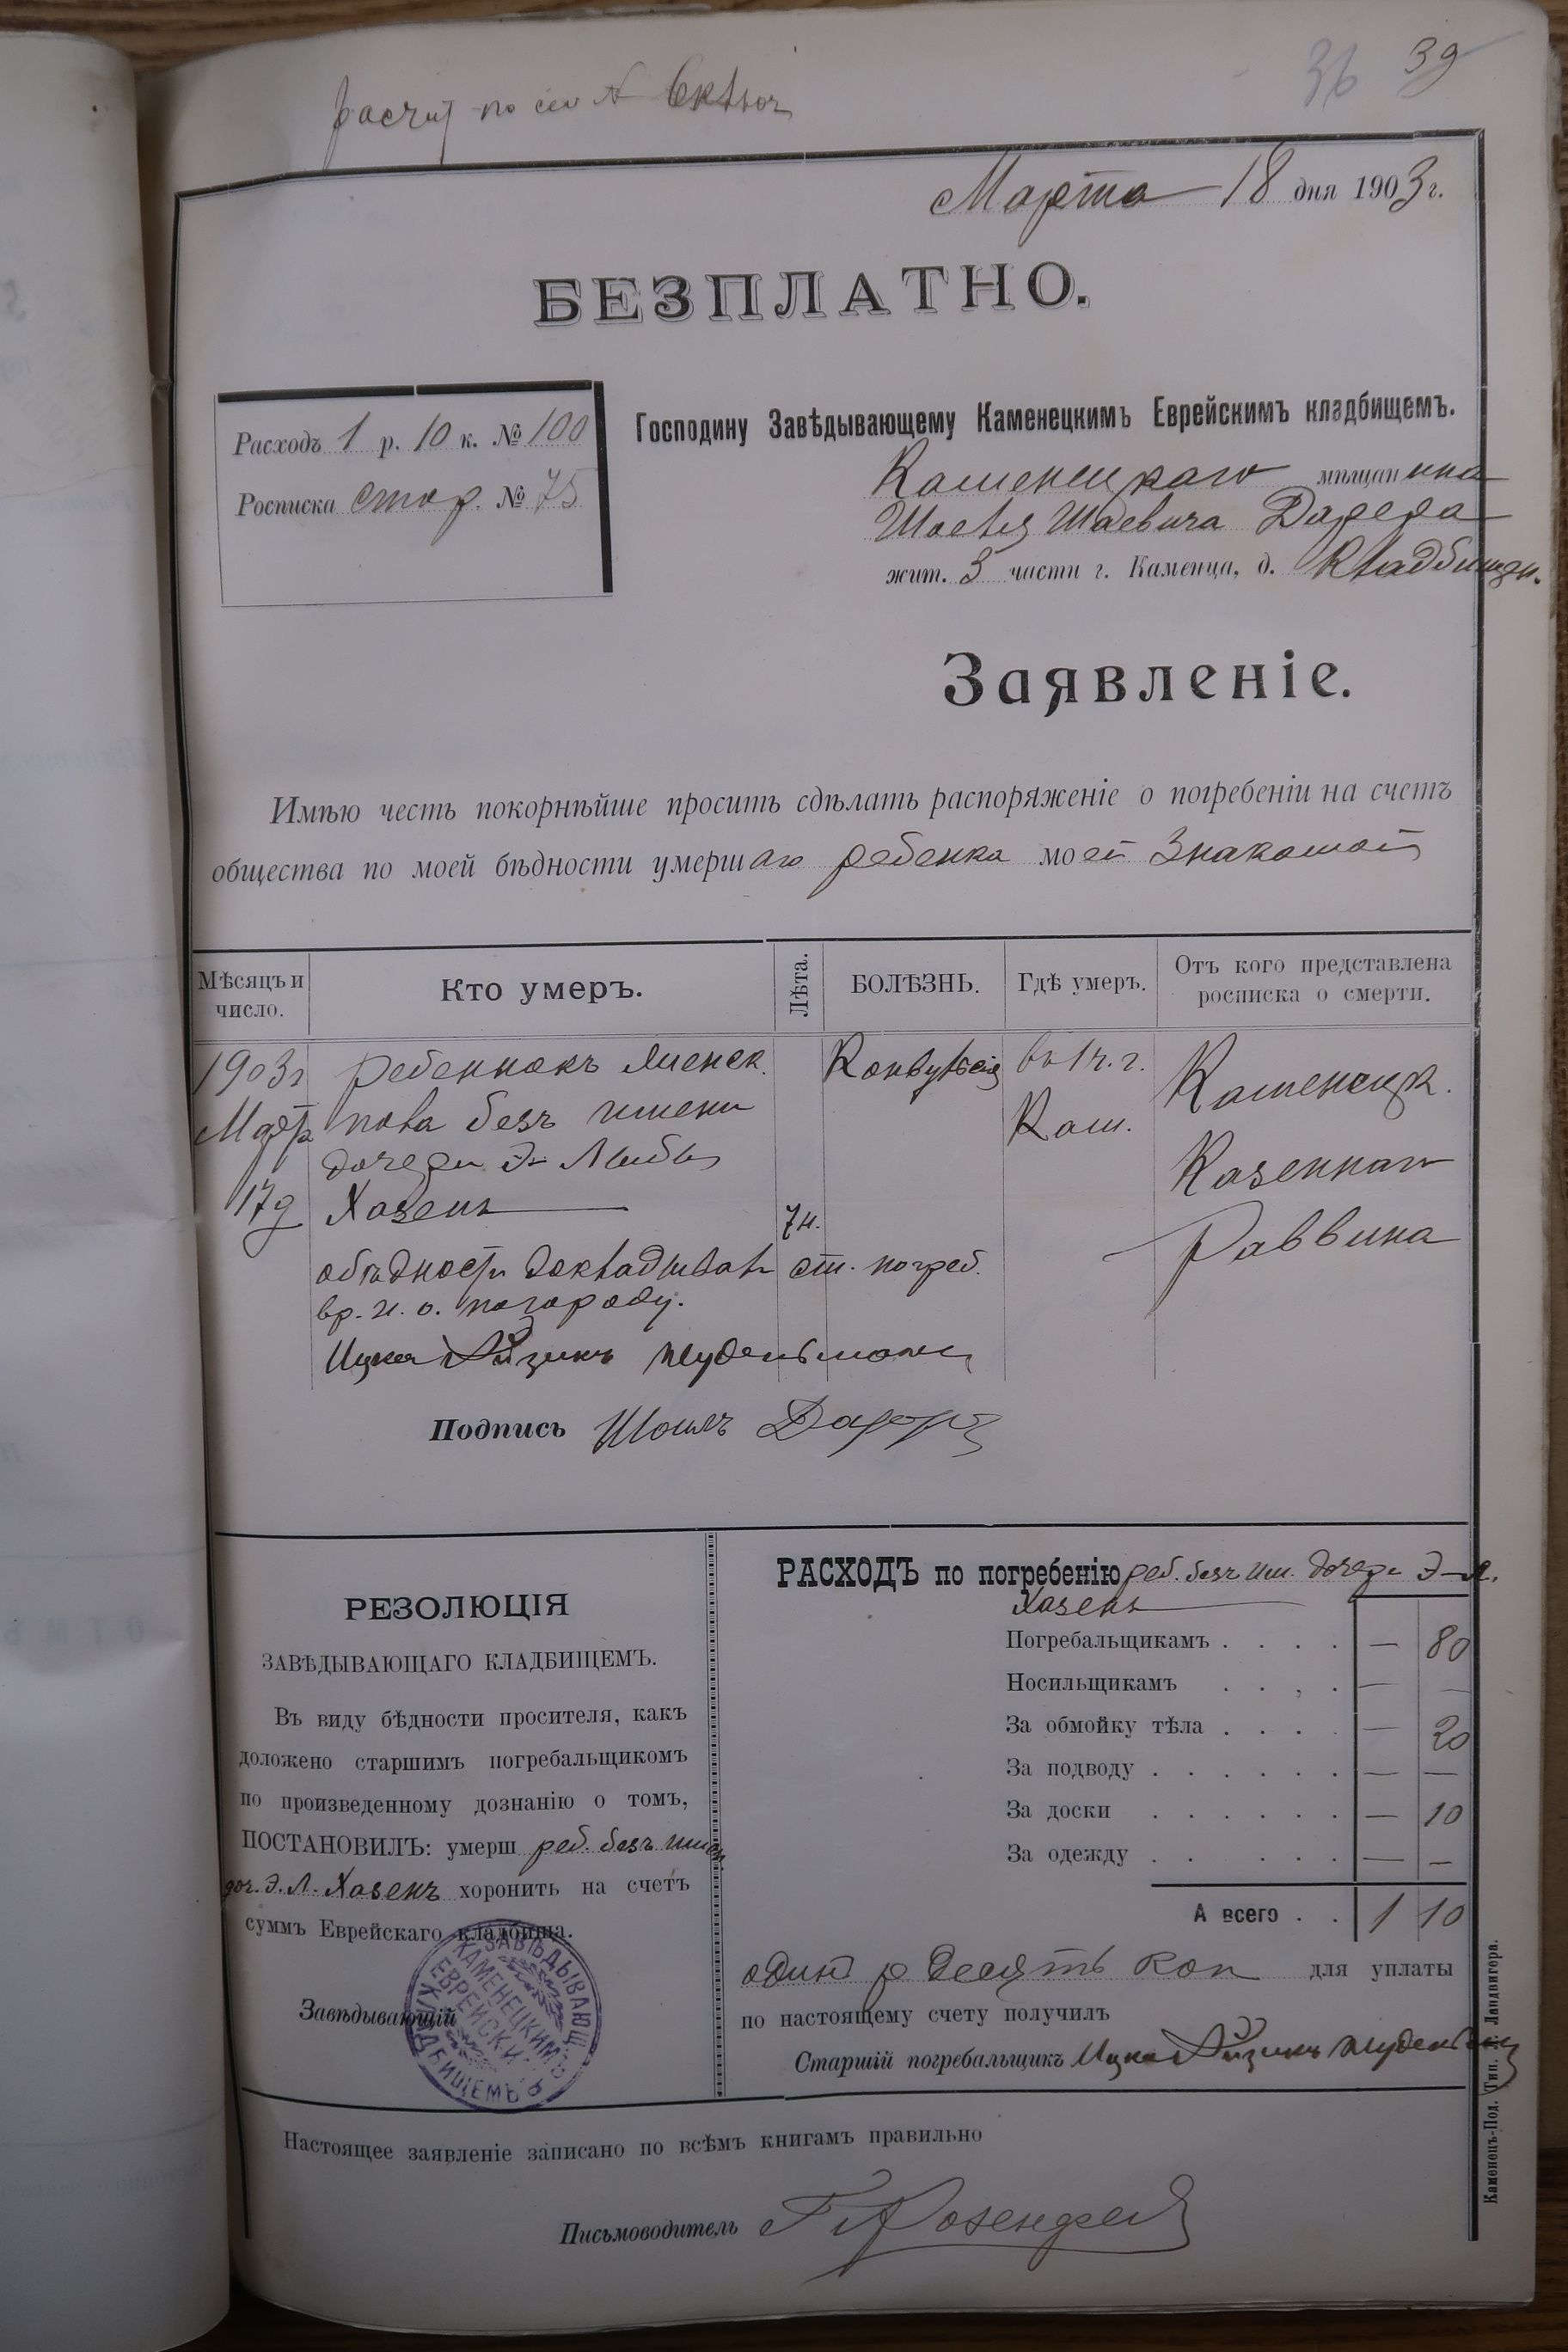 36 39
Марта 18 дня 1903 г.
БЕЗПЛАТНО.
Расходъ 1 р. 10 к. № 100
Росписка стар. № 75
Господину Завѣдывающему Каменецкимъ Еврейскимъ кладбищемъ.
Каменецкаго мѣщанина
Шаевича Дарера
жит. 3 части г. Каменца, д. Кладбищен.
Заявленіе.
Имѣю честь покорнѣйше просить сдѣлать распоряженіе о погребеніи на счетъ
общества по моей бѣдности умершаго ребенка моей знакомой
Мѣсяцъ и число.
Кто умеръ.
Лѣта.
БОЛѢЗНЬ.
Гдѣ умеръ.
Отъ кого представлена росписка о смерти.
1903 г ребеннокъ женск. Конвульсія въ 1 ч. г. Каменецк.
Март пола безъ имени Кам.
дочери Э- Либы Казеннаго
17 д Хазенъ 7 н. Раввина
обѣдности докладывалъ ст. погреб.
вр. и. о.
Ицко Айзикъ
Подпись Дарер
РЕЗОЛЮЦІЯ
ЗАВѢДЫВАЮЩАГО КЛАДБИЩЕМЪ.
Въ виду бѣдности просителя, какъ
доложено старшимъ погребальщикомъ
по произведенному дознанію о томъ,
ПОСТАНОВИЛЪ: умерш реб. безъ имен
доч. Э. Л. Хазенъ хоронить на счетъ
суммъ Еврейскаго кладбища.
Завѣдывающій
ЗАВѢДЫВАЮЩ. КАМЕНЕЦКИМЪ ЕВРЕЙСКИМЪ КЛАДБИЩЕМЪ
РАСХОДЪ по погребенію реб. безъ им. дочери Э-Л.
Хазенъ
Погребальщикамъ . . . . — 80
Носильщикамъ . . , . — —
За обмойку тѣла . . . . — 20
За подводу . . . . . . — —
За доски . . . . . . — 10
За одежду . . . . . . — —
А всего . . 1 10
один р десять коп для уплаты
по настоящему счету получилъ
Старшій погребальщикъ Ицко Айзикъ
Настоящее заявленіе записано по всѣмъ книгамъ правильно
Письмоводитель Розенфельд
Каменецъ-Под. Тип. Л. Ландвигера.